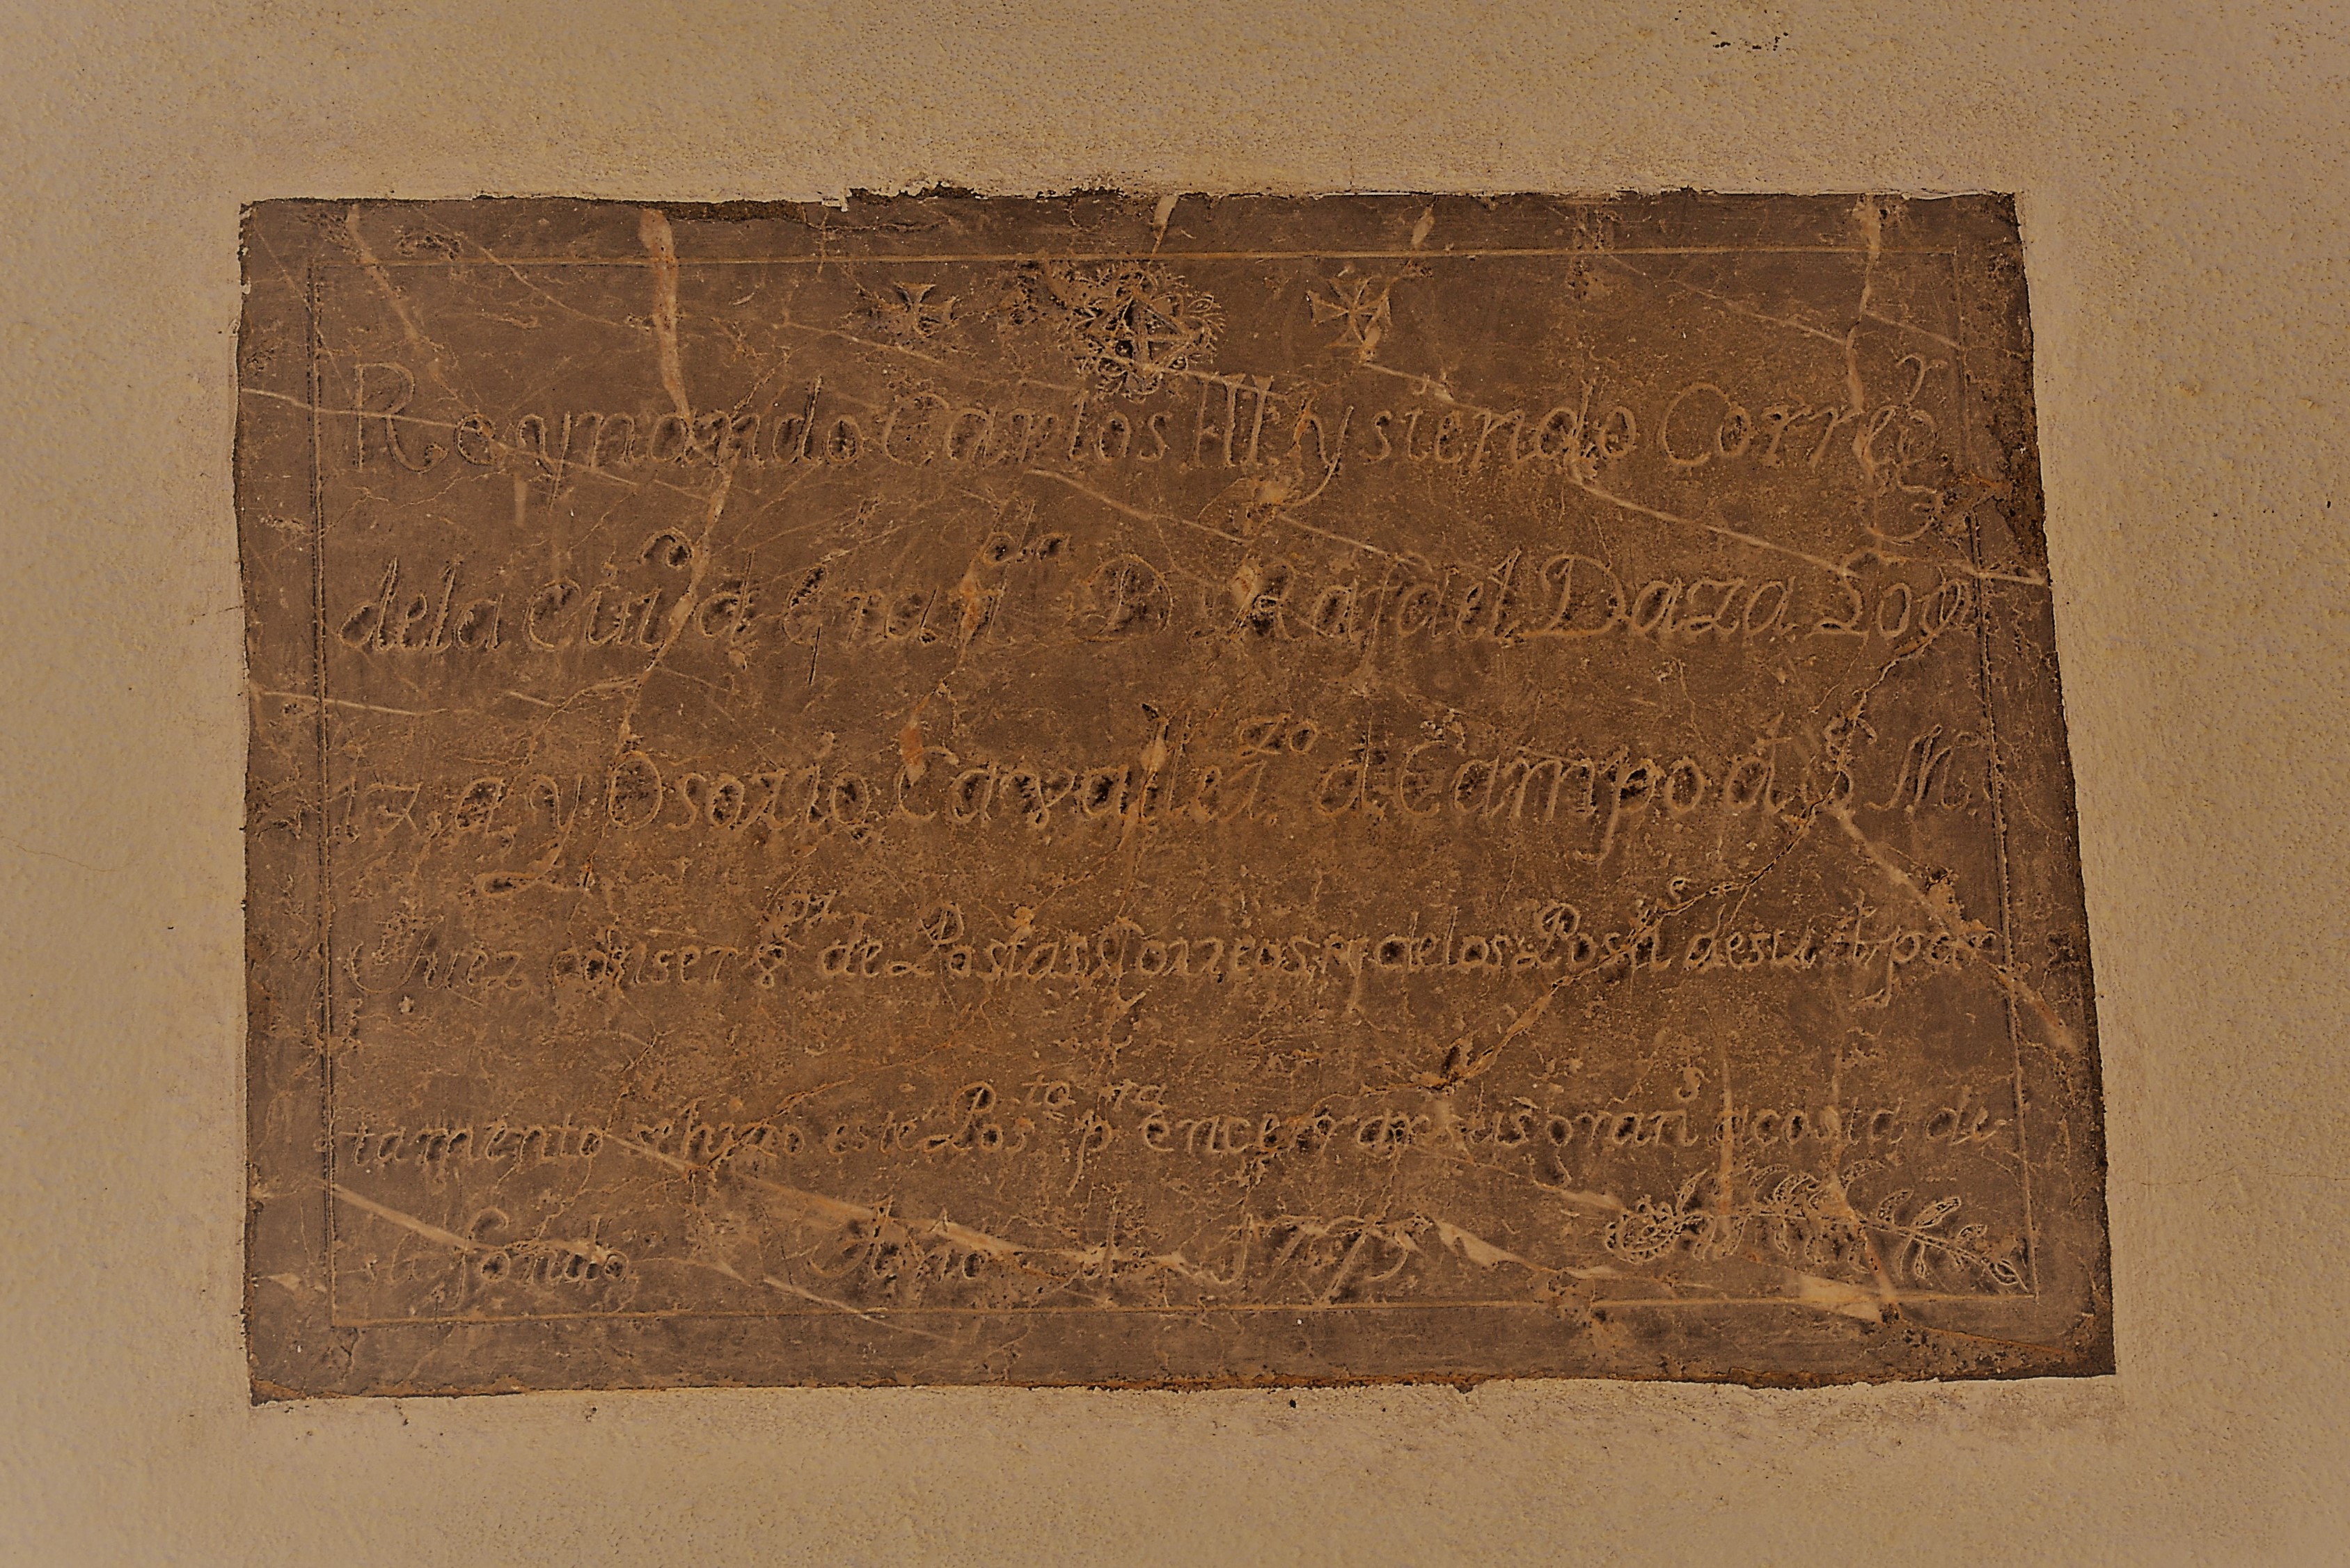 Reynando Carlos III y siendo Corre.or
dela Ciu.d d Gran.da D Rafael Daza Loq
iza, y Osorio Cavallez.zo d Campo d S M.
Juez conser g.or de Postas, Correos, y delos Pos.s desu Depar
tamento sehizo este Pos.to p.ra encerrar sus gran.s acosta de
su fondo Año de 1775